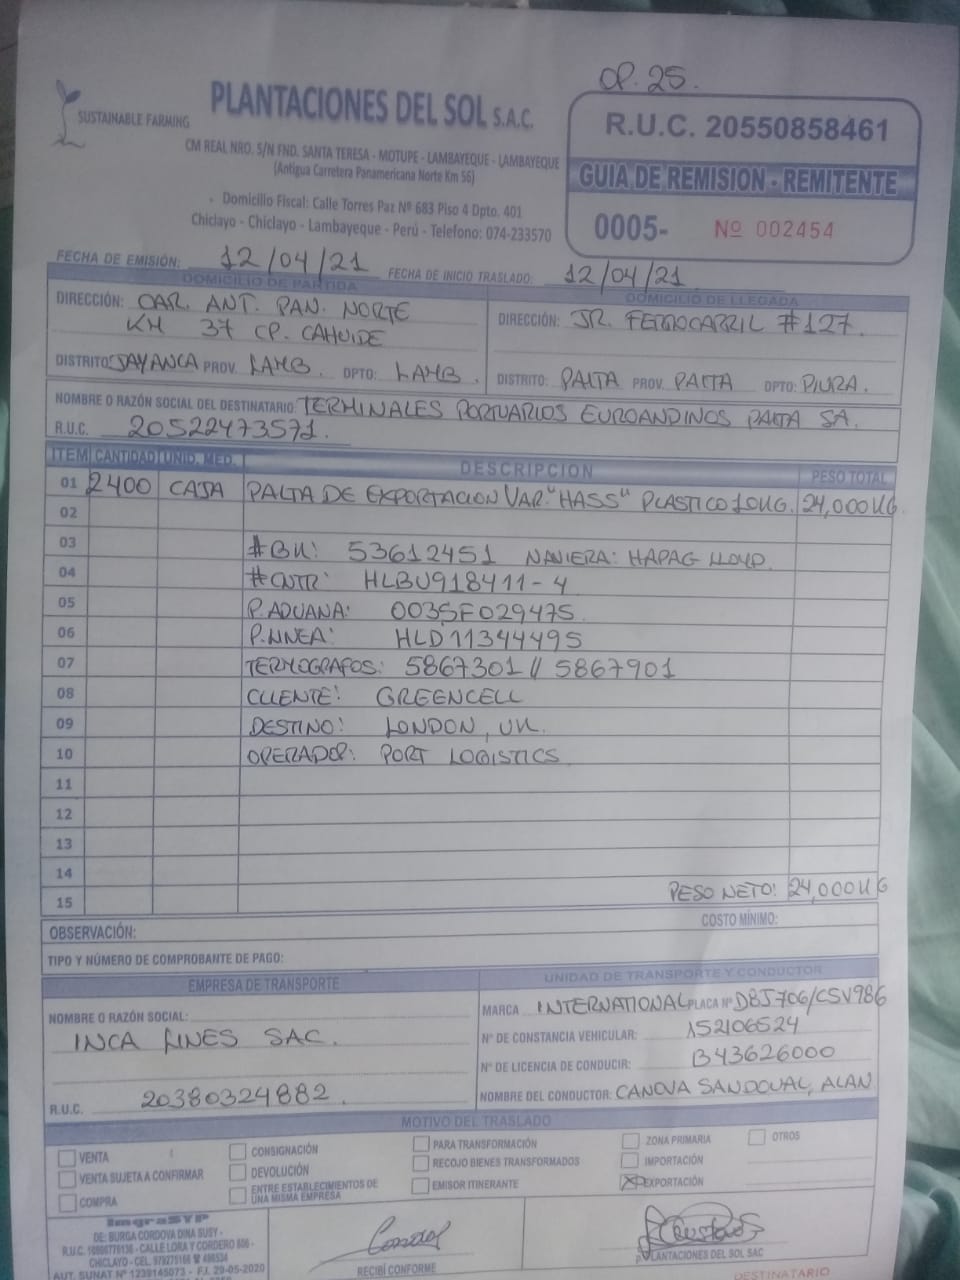 OP. 25.
SUSTAINABLE FARMING
PLANTACIONES DEL SOL S.A.C.
CM REAL NRO. S/N FND. SANTA TERESA - MOTUPE - LAMBAYEQUE - LAMBAYEQUE
(Antigua Carretera Panamericana Norte Km 56)
Domicilio Fiscal: Calle Torres Paz Nº 683 Piso 4 Dpto. 401
Chiclayo - Chiclayo - Lambayeque - Perú - Telefono: 074-233570
R.U.C. 20550858461
GUIA DE REMISION - REMITENTE
0005- Nº 002454
FECHA DE EMISIÓN: 12/04/21 FECHA DE INICIO TRASLADO: 12/04/21
DOMICILIO DE PARTIDA
DIRECCIÓN: CAR. ANT. PAN. NORTE
KM 37 CP. CAHUIDE
DISTRITO: JAYANCA PROV. LAMB. DPTO: LAMB.
DOMICILIO DE LLEGADA
DIRECCIÓN: JR. FERROCARRIL #127.
DISTRITO: PAITA PROV. PAITA DPTO: PIURA.
NOMBRE O RAZÓN SOCIAL DEL DESTINATARIO: TERMINALES PORTUARIOS EUROANDINOS PAITA SA.
R.U.C. 20522473571.
ITEM CANTIDAD UNID. MED. DESCRIPCION PESO TOTAL
01 2400 CAJA PALTA DE EXPORTACION VAR. "HASS" PLASTICO 10KG. 24,000KG
02
03 #BK: 53612451 NAVIERA: HAPAG LLOYD.
04 #CNTR: HLBU918411-4
05 P. ADUANA: 003SF029475
06 P. LINEA: HLD11344495
07 TERMOGRAFOS: 5867301 // 5867901
08 CLIENTE: GREENCELL
09 DESTINO: LONDON, UK.
10 OPERADOR: PORT LOGISTICS
11
12
13
14
15 PESO NETO: 24,000KG
OBSERVACIÓN: COSTO MÍNIMO:
TIPO Y NÚMERO DE COMPROBANTE DE PAGO:
EMPRESA DE TRANSPORTE
NOMBRE O RAZÓN SOCIAL:
INCA LINES SAC.
R.U.C. 20380324882.
UNIDAD DE TRANSPORTE Y CONDUCTOR
MARCA INTERNATIONAL PLACA Nº D8J706/CSV986
Nº DE CONSTANCIA VEHICULAR: 152106524
Nº DE LICENCIA DE CONDUCIR: B43626000
NOMBRE DEL CONDUCTOR: CANOVA SANDOVAL, ALAN
MOTIVO DEL TRASLADO
VENTA
VENTA SUJETA A CONFIRMAR
COMPRA
CONSIGNACIÓN
DEVOLUCIÓN
ENTRE ESTABLECIMIENTOS DE
UNA MISMA EMPRESA
PARA TRANSFORMACIÓN
RECOJO BIENES TRANSFORMADOS
EMISOR ITINERANTE
ZONA PRIMARIA
IMPORTACIÓN
EXPORTACIÓN
OTROS
ImgraSYP
DE: BURGA CORDOVA DINA SUSY -
CALLE LORA Y CORDERO 806 -
CHICLAYO - CEL. 979275166
AUT. SUNAT Nº 1239145073 - F.I. 29-05-2020
RECIBÍ CONFORME
PLANTACIONES DEL SOL SAC
DESTINATARIO